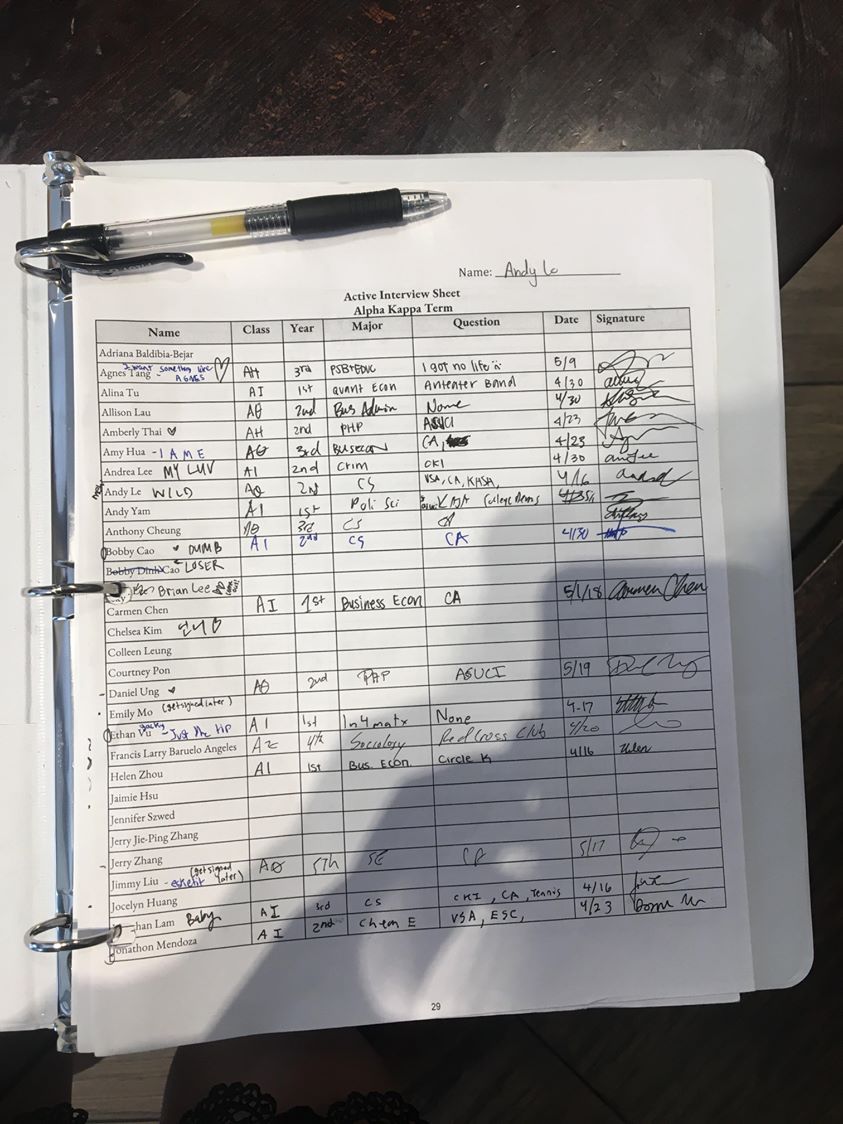 Name: Andy Lo
Active Interview Sheet
Alpha Kappa Term
Name Class Year Major Question Date Signature
Adriana Baldibia-Bejar
I want something like AGNES
Agnes Tang AH 3rd PSB+EDUC I got no life 5/9
Alina Tu AI 1st Quant Econ Anteater Band 4/30
Allison Lau AΘ 2nd Bus Admin None 4/30
Amberly Thai AH 2nd PHP ASUCI 4/23
Amy Hua - I A M E AΘ 3rd Busecon CA, 4/23
Andrea Lee MY LUV AI 2nd Crim CKI 4/30
Andy Le WILD AΘ 2nd CS VSA, CA, KHSA, 4/16
Andy Yam AI 1st Poli Sci College Dems
Anthony Cheung AΘ 3rd CS CA
Bobby Cao DUMB AI 2nd CS CA 4/30
Bobby Dinh Cao LOSER
Brian Lee
Carmen Chen AI 1st Business Econ CA 5/1/18 Carmen Chen
Chelsea Kim 언니
Colleen Leung
Courtney Pon
Daniel Ung AΘ 2nd PHP ASUCI 5/19
Emily Mo (get signed later)
Ethan Vu - Just the tip AI 1st In4matx None 4-17
Francis Larry Baruelo Angeles AZ 4th Sociology Red Cross Club 4/20
Helen Zhou AI 1st Bus. Econ. Circle K 4/16 Helen
Jaimie Hsu
Jennifer Szwed
Jerry Jie-Ping Zhang
Jerry Zhang
Jimmy Liu - esketit (get signed later) AΘ 5th SE CA 5/17
Jocelyn Huang
han Lam Baby AI 3rd CS CKI, CA, Tennis 4/16
Jonathon Mendoza AI 2nd Chem E VSA, ESC, 4/23
29